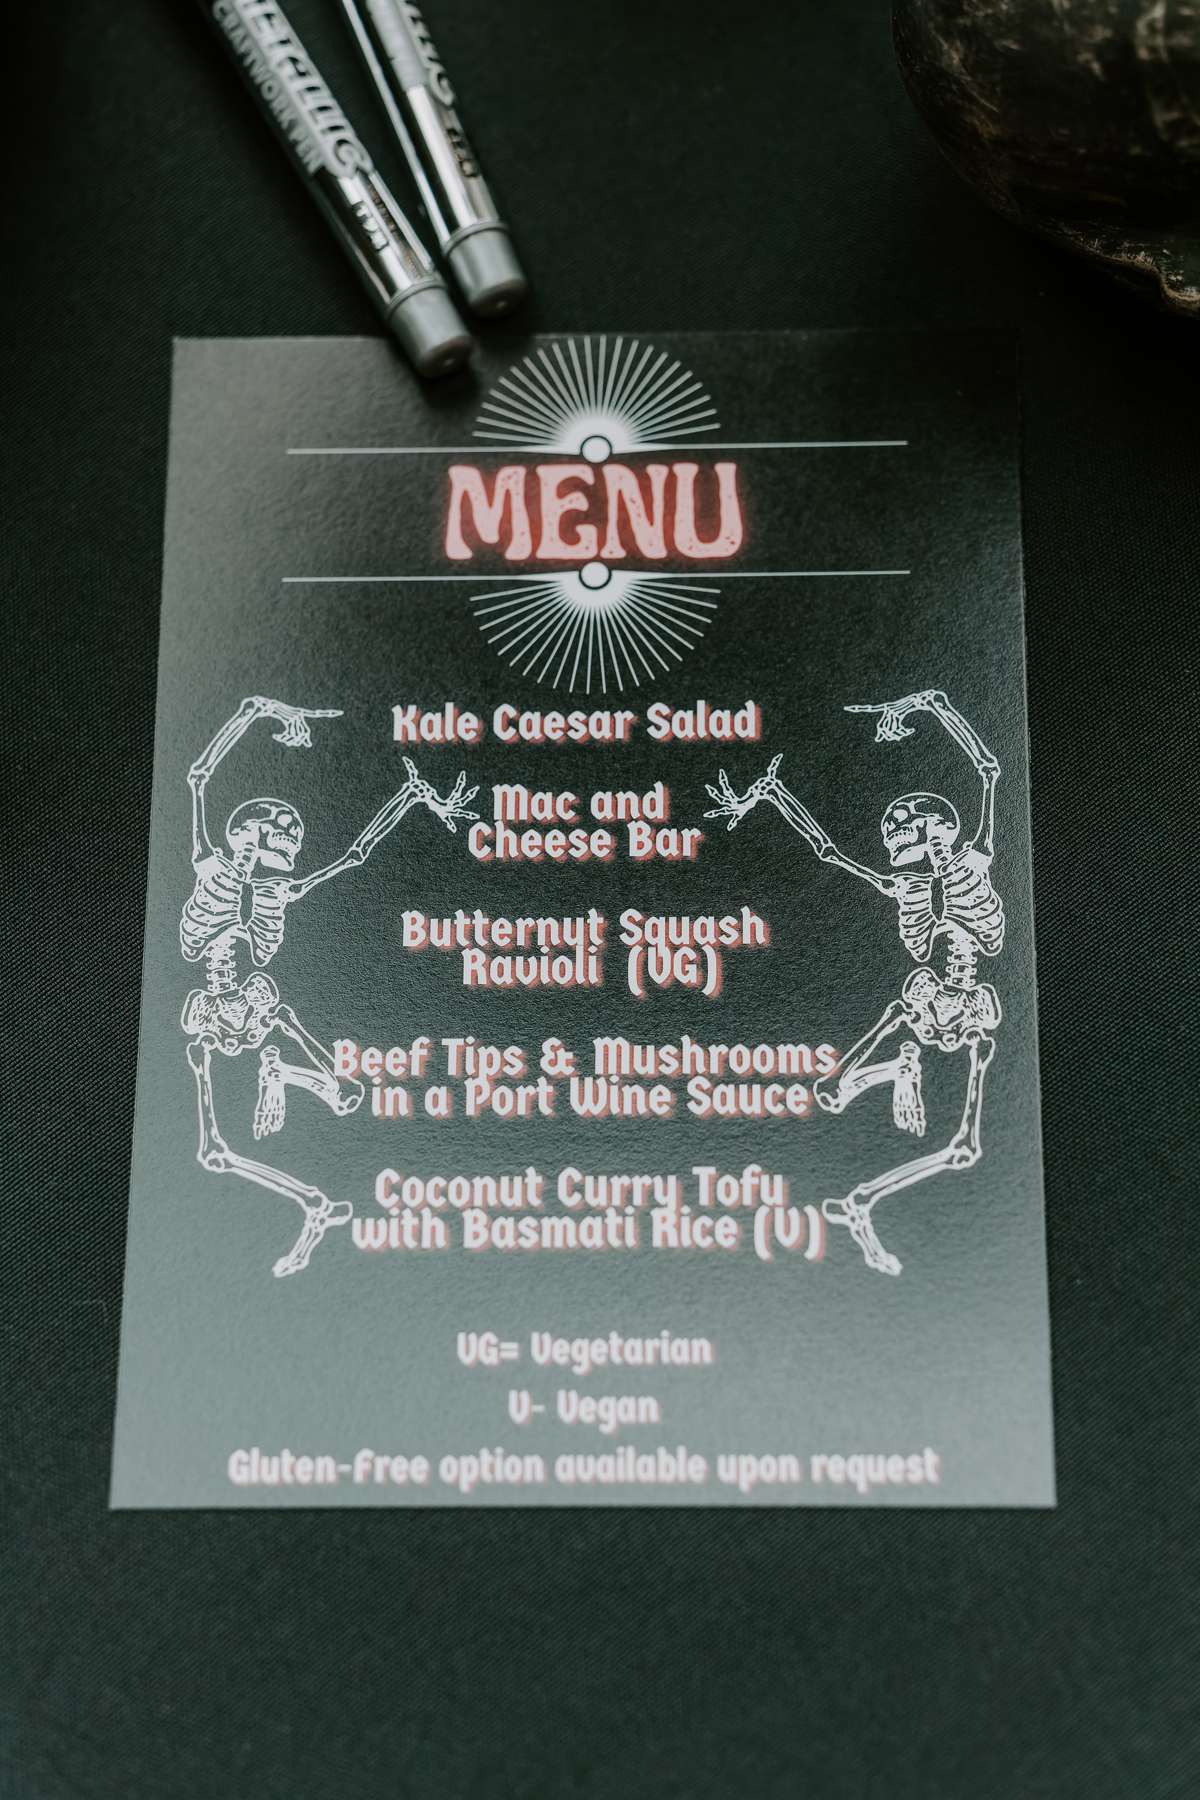 METALLIC
CRAFTWORK PEN
MENU
Kale Caesar Salad
Mac and
Cheese Bar
Butternut Squash
Ravioli (VG)
Beef Tips & Mushrooms
in a Port Wine Sauce
Coconut Curry Tofu
with Basmati Rice (V)
VG= Vegetarian
V- Vegan
Gluten-Free option available upon request